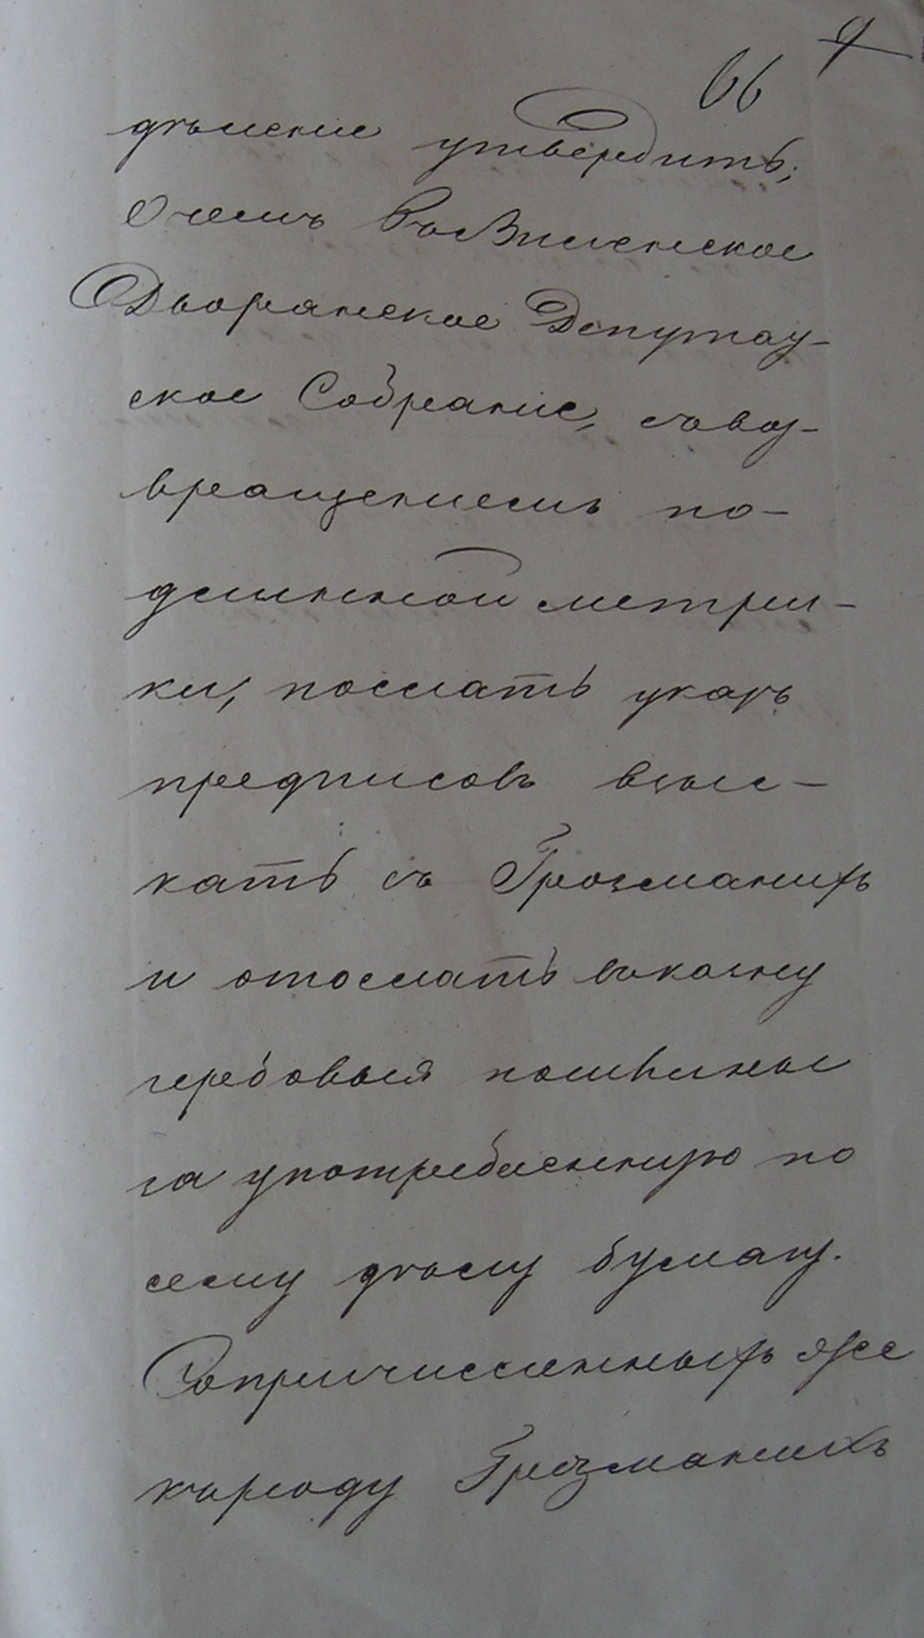 66 9
дѣленіе утвердить;
О чемъ въ Виленское
Дворянское Депутат-
ское Собраніе, съ воз-
вращеніемъ по-
длинной метри-
ки, послать указъ
предписавъ взыс-
кать съ Гротманихъ
и отослать въ казну
гербовыя пошлины
за употребленную по
сему дѣлу бумагу.
Сопричисленныхъ же
къ роду Грозманихъ